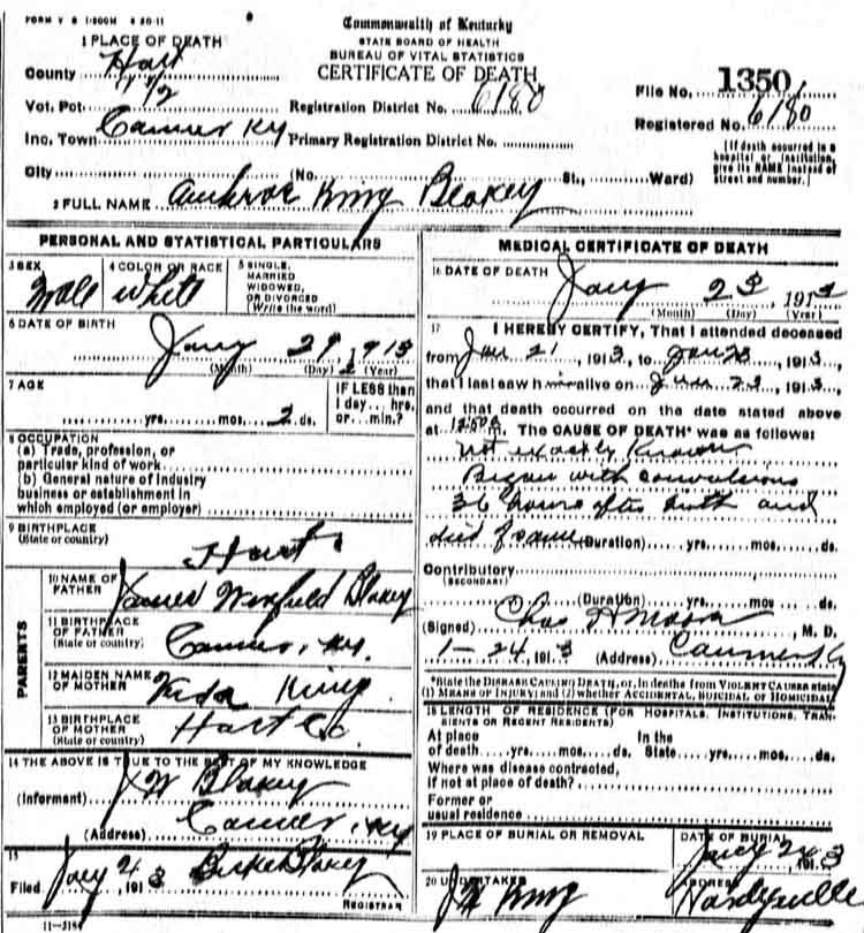 FORM V S 1-500M 4 20-11
Commonwealth of Kentucky
STATE BOARD OF HEALTH
BUREAU OF VITAL STATISTICS
CERTIFICATE OF DEATH
1 PLACE OF DEATH
County Hart
Vot. Pct.
Inc. Town Canmer Ky
City (No. St., Ward)
Registration District No. 6180
Primary Registration District No.
File No. 1350
Registered No. 6180
[If death occurred in a hospital or institution, give its NAME instead of street and number.]
2 FULL NAME Ambrose King Blakey
PERSONAL AND STATISTICAL PARTICULARS
3 SEX Male
4 COLOR OR RACE White
5 SINGLE, MARRIED WIDOWED, OR DIVORCED (Write the word)
6 DATE OF BIRTH
Jany 1913
(Month) (Day) (Year)
7 AGE
yrs. mos. 2 ds.
IF LESS than 1 day... hrs. or... min.?
8 OCCUPATION
(a) Trade, profession, or particular kind of work
(b) General nature of industry business or establishment in which employed (or employer)
9 BIRTHPLACE (State or country) Hart
PARENTS
10 NAME OF FATHER James Winfield Blakey
11 BIRTHPLACE OF FATHER (State or country) Canmer, Ky.
12 MAIDEN NAME OF MOTHER King
13 BIRTHPLACE OF MOTHER (State or country) Hart Co.
14 THE ABOVE IS TRUE TO THE BEST OF MY KNOWLEDGE
(Informant) J W Blakey
(Address) Canmer, Ky
15
Filed Jany 24, 1913 Blakey
REGISTRAR
11-3184
MEDICAL CERTIFICATE OF DEATH
16 DATE OF DEATH
Jany 23, 1913
(Month) (Day) (Year)
17 I HEREBY CERTIFY, That I attended deceased
from Jan 21, 1913, to Jan 23, 1913,
that I last saw him alive on Jan 23, 1913,
and that death occurred on the date stated above
at The CAUSE OF DEATH* was as follows:
Not exactly known
Began with convulsions
36 hours after birth and
died (Duration) yrs. mos. ds.
Contributory (SECONDARY)
(Duration) yrs. mos. ds.
(Signed) Chas H Moore, M. D.
1-24, 1913 (Address) Canmer Ky
*State the DISEASE CAUSING DEATH, or, in deaths from VIOLENT CAUSES state
(1) MEANS OF INJURY; and (2) whether ACCIDENTAL, SUICIDAL, or HOMICIDAL.
18 LENGTH OF RESIDENCE (FOR HOSPITALS, INSTITUTIONS, TRANSIENTS OR RECENT RESIDENTS)
At place of death yrs. mos. ds. In the State yrs. mos. ds.
Where was disease contracted, if not at place of death?
Former or usual residence
19 PLACE OF BURIAL OR REMOVAL
DATE OF BURIAL
Jany 24 1913
20 UNDERTAKER King
ADDRESS Hardyville